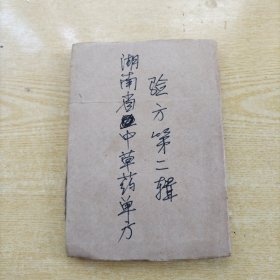 湖南省中草药单方
验方第二辑